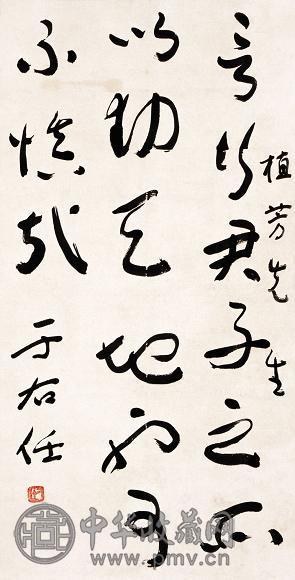 植芳先生
言行君子之所
以動天地而可
不慎哉
于右任
中华收藏网
www.pmv.cn